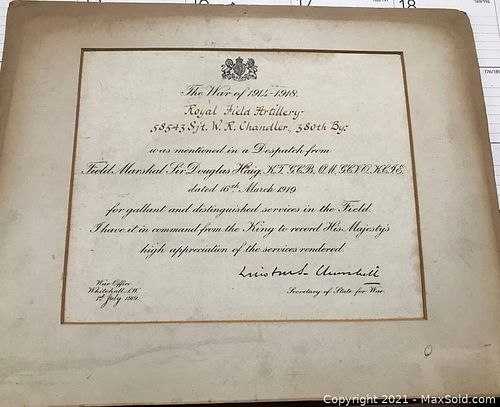 18
176/189
The War of 1914-1918.
Royal Field Artillery
58543 Sjt. W. R. Chandler, 380th By.
was mentioned in a Despatch from
Field Marshal Sir Douglas Haig, K.T. G.C.B. O.M. G.C.V.O. K.C.I.E.
dated 16th March 1919
for gallant and distinguished services in the Field.
I have it in command from the King to record His Majesty's
high appreciation of the services rendered.
Winston S. Churchill
War Office
Whitehall, S.W.
1st July 1919.
Secretary of State for War
Copyright 2021 - MaxSold.com